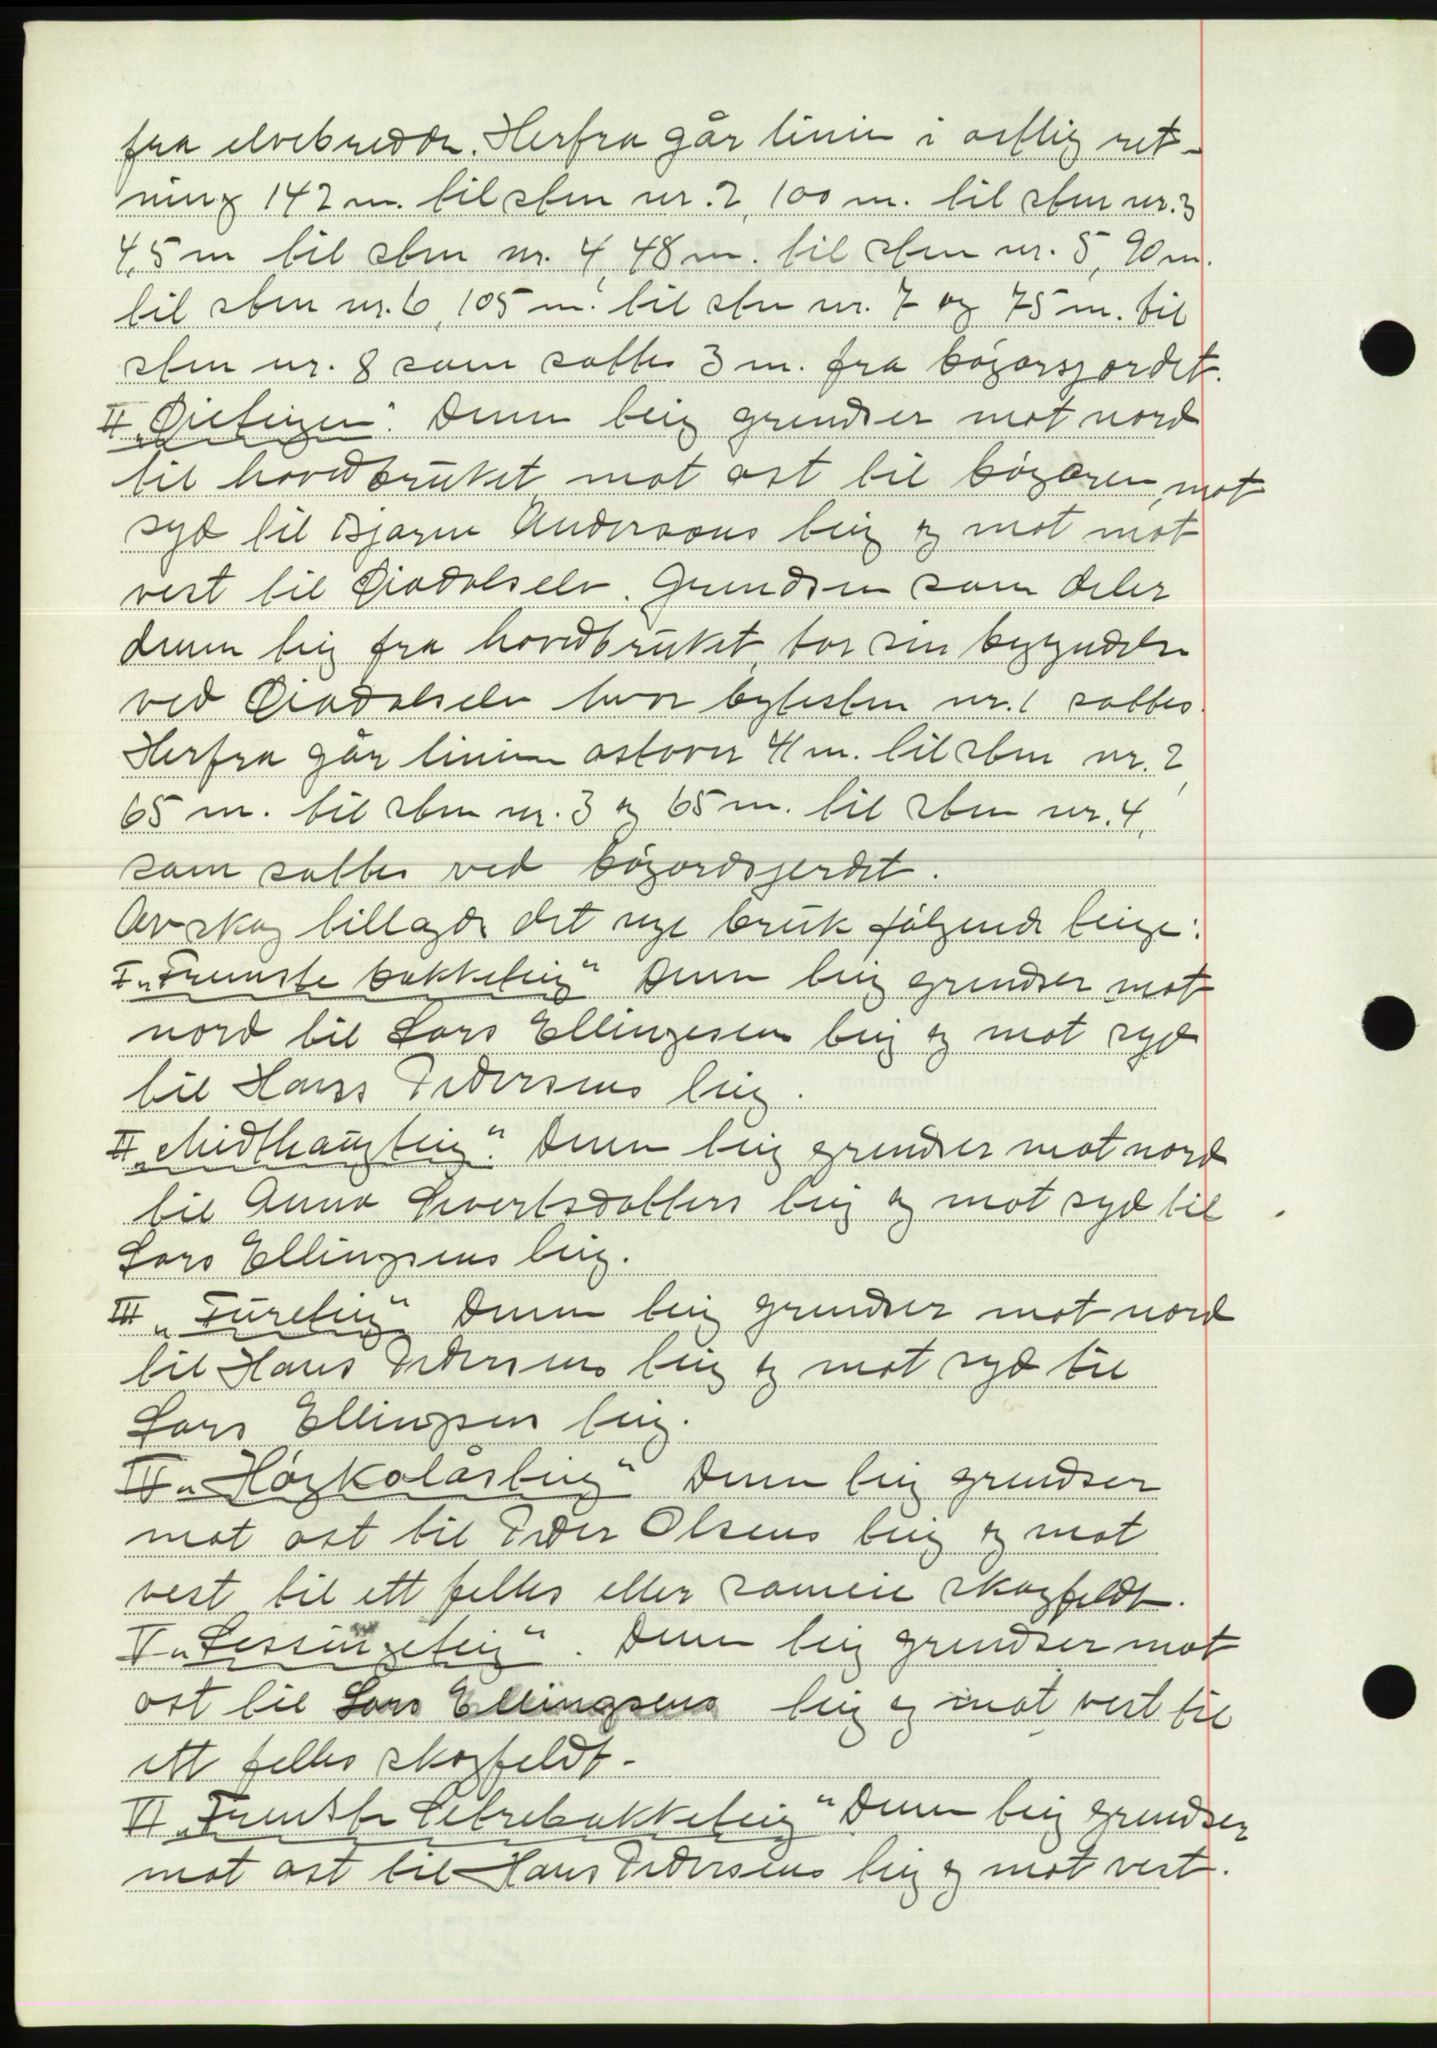 fra elvebredden. Herfra går linien i østlig ret-
ning 142 m. til sten nr. 2, 100 m. til sten nr. 3
4,5 m til sten nr. 4, 48 m. til sten nr. 5, 90 m.
til sten nr. 6, 105 m. til sten nr. 7 og 75 m. til
sten nr. 8 som sattes 3 m. fra bøgarsjordet.
II "Øieteigen". Denne teig grendser mot nord
til hovedbruket mot øst til bøgaren, mot
syd til Bjarne Andersens teig og mot mot
vest til Øiadalselv. Grendsen som deler
denne teig fra hovedbruket, tar sin begyndelse
ved Øiadalselv hvor bytesten nr. 1 sattes.
Herfra går linien østover 41 m. til sten nr. 2,
65 m. til sten nr. 3 og 65 m. til sten nr. 4,
som sattes ved bøgardsgjerdet.
Av skog tillagdes det nye bruk følgende teige:
I "Fremste bakketeig" Denne teig grendser mot
nord til Lars Ellingsens teig og mot syd
til Hans Pedersens teig.
II "Midthaugteig". Denne teig grendser mot nord
til Anna Sivertsdatters teig og mot syd til
Lars Ellingsens teig.
III "Fureteig" Denne teig grendser mot nord
til Hans Pedersens teig og mot syd til
Lars Ellingsens teig.
IV "Høgkolåsteig" Denne teig grendser
mot øst til Peder Olsens teig og mot
vest til ett felles eller sameie skogfeldt.
V "Lessingeteig". Denne teig grendser mot
øst til Lars Ellingsens teig og mot vest til
ett felles skogfeldt.
VI "Fremste Setrebakketeig" Denne teig grendser
mot øst til Hans Pedersens teig og mot vest.